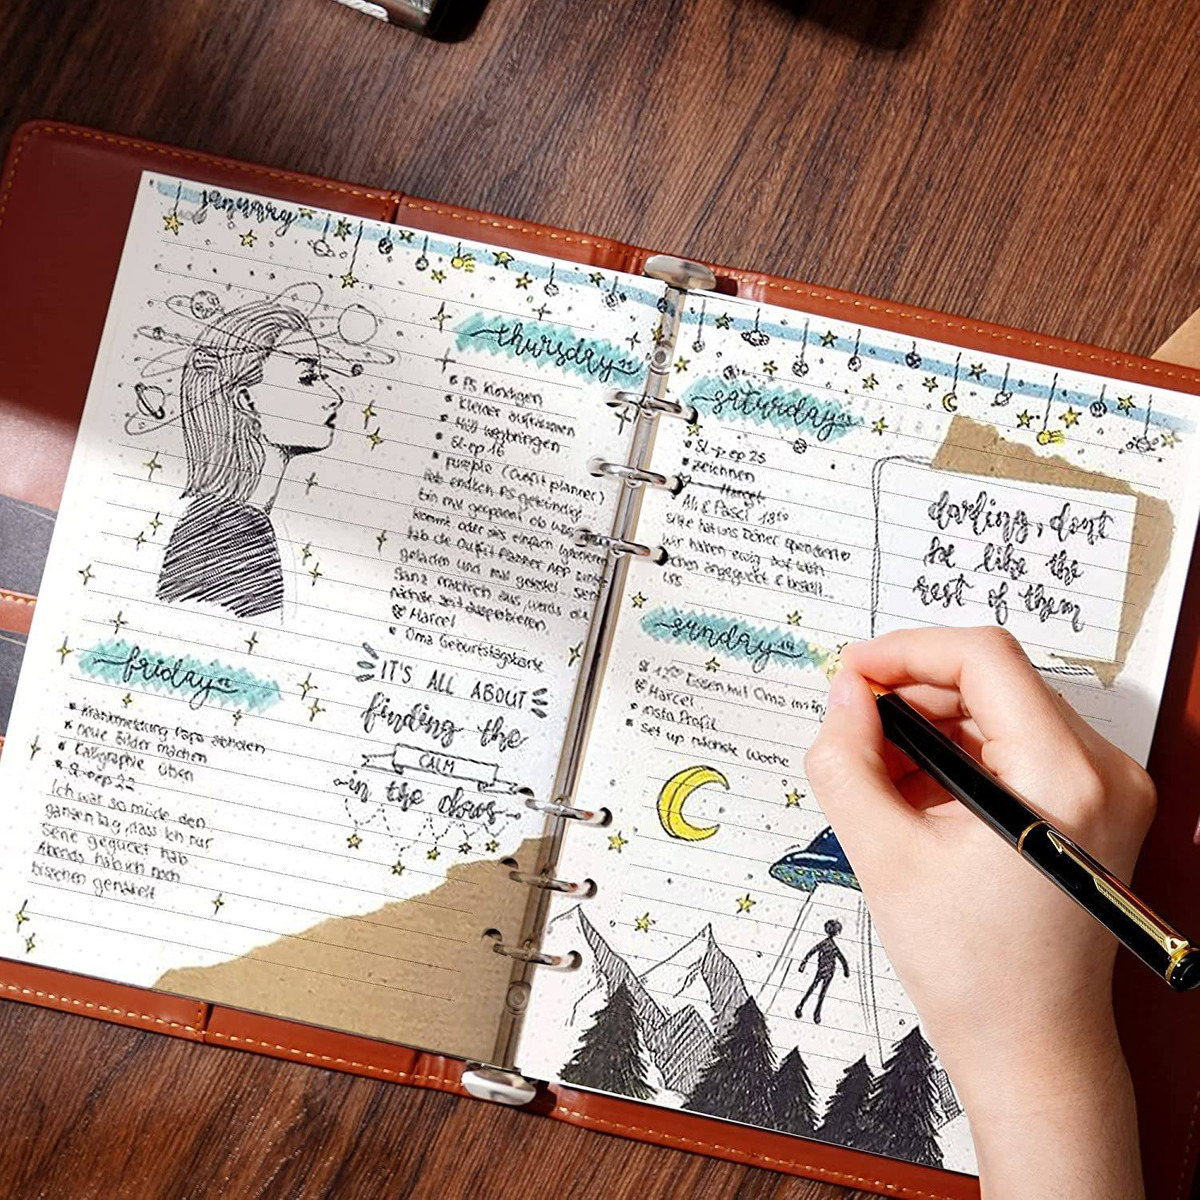 january
thursday
PS kündigen
Kleider aufräumen
Müll wegbringen
SL-ep 16
purple (Outfit planner)
hab endlich PS gekündigt
bin mal gespannt ob was
kommt oder sie's einfach ignorieren
hab die Outfit Planner App
geladen und mal getestet.
ganz
Marcel
Oma Geburtstagskarte
friday
Krankmeldung Papa abholen
neue Bilder machen
Kalligraphie üben
SL-ep 22
Ich war so müde den
ganzen tag, dass ich nur
Serie geguckt hab
Abends hab ich noch
bisschen genäht
IT'S ALL ABOUT
finding the
CALM
in the chaos
saturday
SL-ep 25
zeichnen
Marcel
Ali & Pascl
hat uns Döner spendiert
wir haben ewig
angeguckt &
darling, dont
be like the
rest of them
sunday
Essen mit Oma
Marcel
Insta Profil
Set up nächste Woche